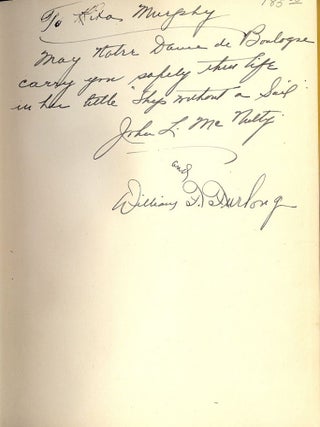 185
To Rita Murphy
May Notre Dame de Boulogne
carry you safely thru life
in her little "Ship without a Sail"
John L. Mc Nulty
and
William F. Furlong